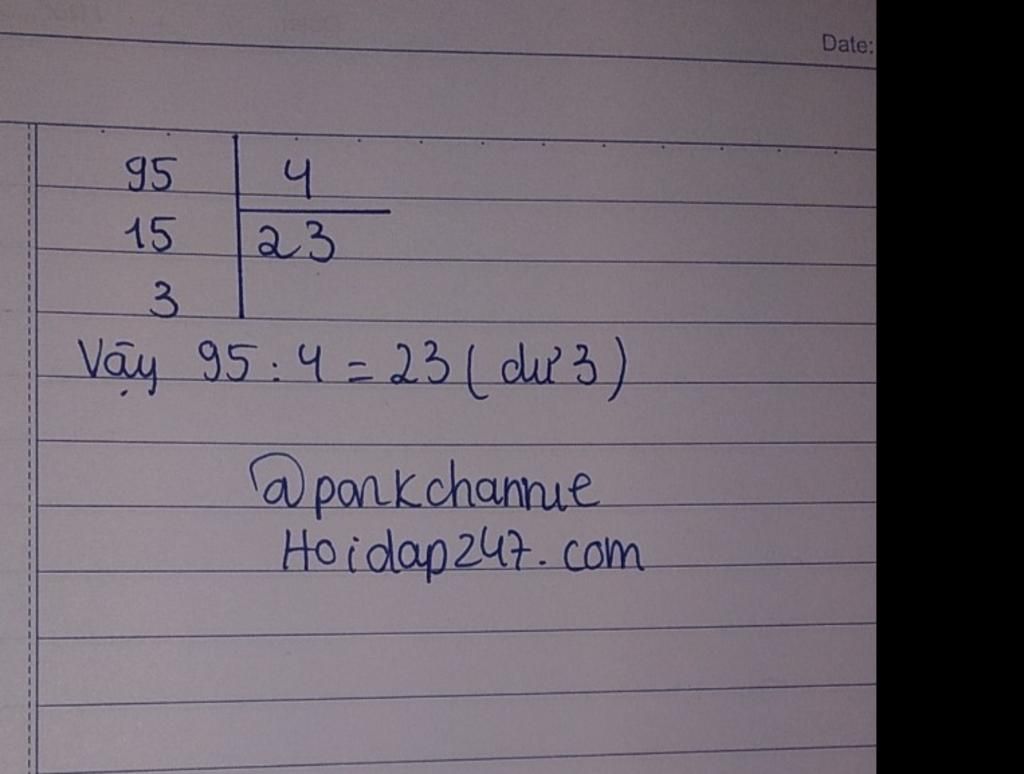 Date:
95 4
15 23
3
Vậy 95 : 4 = 23 ( dư 3 )
@parkchannie
Hoidap247.com